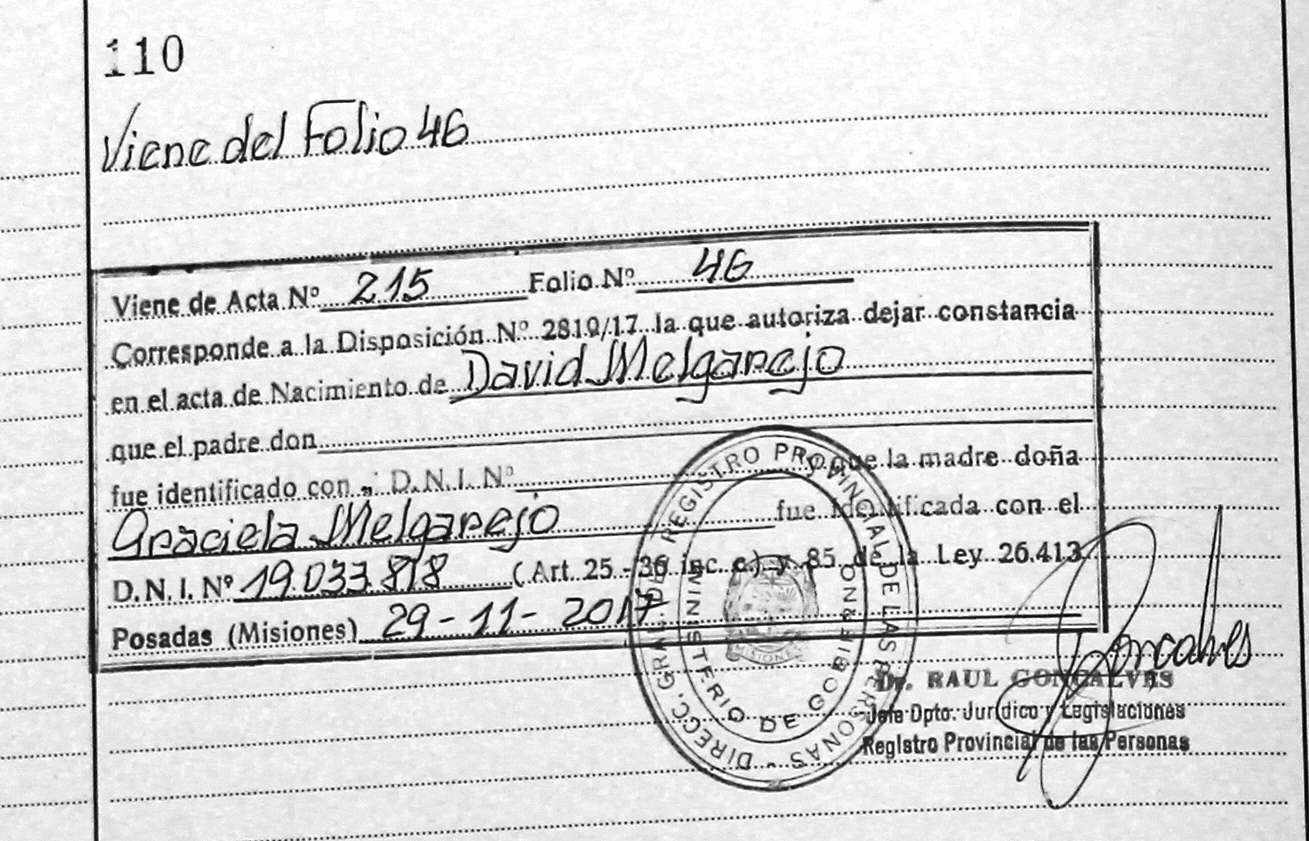 110
Viene del Folio 46
Viene de Acta Nº 215 Folio Nº 46
Corresponde a la Disposición Nº 2819/17 la que autoriza dejar constancia
en el acta de Nacimiento de David Melgarejo
que el padre don
fue identificado con D.N.I. Nº y que la madre doña
Graciela Melgarejo fue identificada con el
D.N.I. Nº 19.033.818 (Art. 25 - 36 inc. c.) y 85 de la Ley 26.413
Posadas (Misiones) 29-11-2017
DIRECC. GRAL. DEL REGISTRO PROVINCIAL DE LAS PERSONAS -
MINISTERIO DE GOBIERNO
MISIONES
Goncalves
Dr. RAUL GONCALVES
Jefe Dpto. Jurídico y Legislaciones
Registro Provincial de las Personas